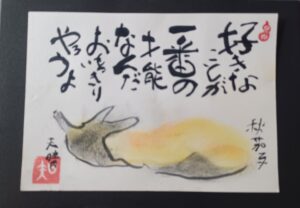 好きな
ことが
一番の
才能
なんだ
おもいきり
やろうよ
秋茄子